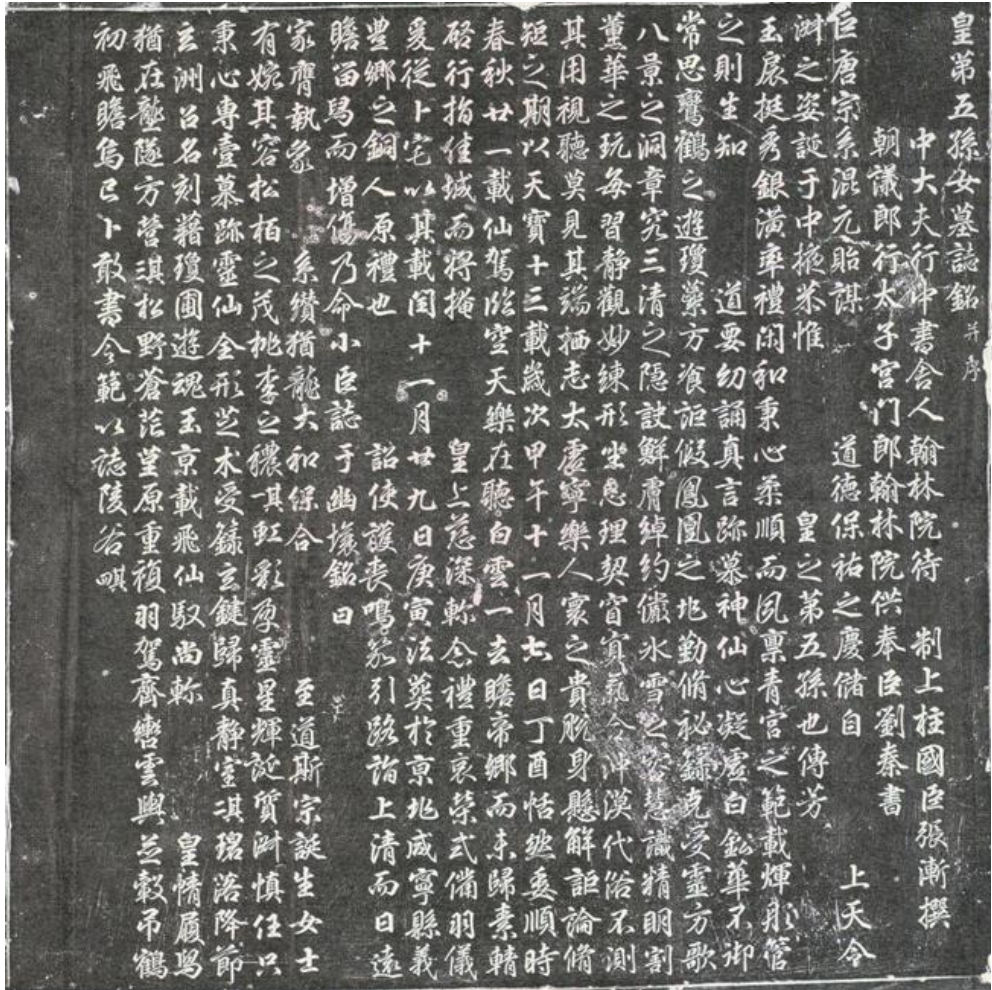 皇第五孫女墓誌銘并序
中大夫行中書舍人翰林院待 制上柱國臣張漸撰
朝議郎行太子宮門郎翰林院供奉臣劉秦書
臣唐宗系混元貽謀 道德保祐之慶儲自 上天令
淑之姿誕于中掖恭惟 皇之第五孫也傳芳
玉扆挺秀銀潢率禮閑和秉心柔順而夙稟青宮之範載煇彤管
之則生知 道要幼誦真言跡慕神仙心凝虛白鈆華不御
常思鸞鶴之遊瓊蘂方飡詎假鳳凰之兆勤脩祕籙克受靈方歌
八景之洞章究三清之隱訣鮮膚綽約儼氷雪之容慧識精明割
薫華之玩每習靜觀妙練形坐忘理契窅冥氣合沖漠代俗不測
其用視聽莫見其端栖志太虛寧樂人寰之貴脫身懸解詎論脩
短之期以天寶十三載歲次甲午十一月六日丁酉恬然委順時
春秋廿一載仙駕臨空天樂在聽白雲一去瞻帝鄉而未歸素輤
啓行指佳城而將掩 皇上慈深軫念禮重哀榮式備羽儀
爰從卜宅以其載閏十一月廿九日庚寅法葬於京兆咸寧縣義
豊鄉之銅人原禮也 詔使護喪鳴笳引路詣上清而日遠
瞻留舄而增傷乃命小臣誌于幽壤銘曰
家膺執象 系纘猶龍大和保合 至道斯宗誕生女士
有婉其容松柏之茂桃李之穠其虹彩孕靈星輝誕質淑慎任只
秉心專壹慕跡靈仙全形芝术受籙玄鍵歸真靜室其珺落降節
玄洲召名刻藉瓊圃遊魂玉京載飛仙馭尚軫 皇情履舄
猶在壟隧方營其松野蒼茫堂原重複羽駕齊轡雲輿並轂吊鶴
初飛瞻烏已卜敢書令範以誌陵谷其四